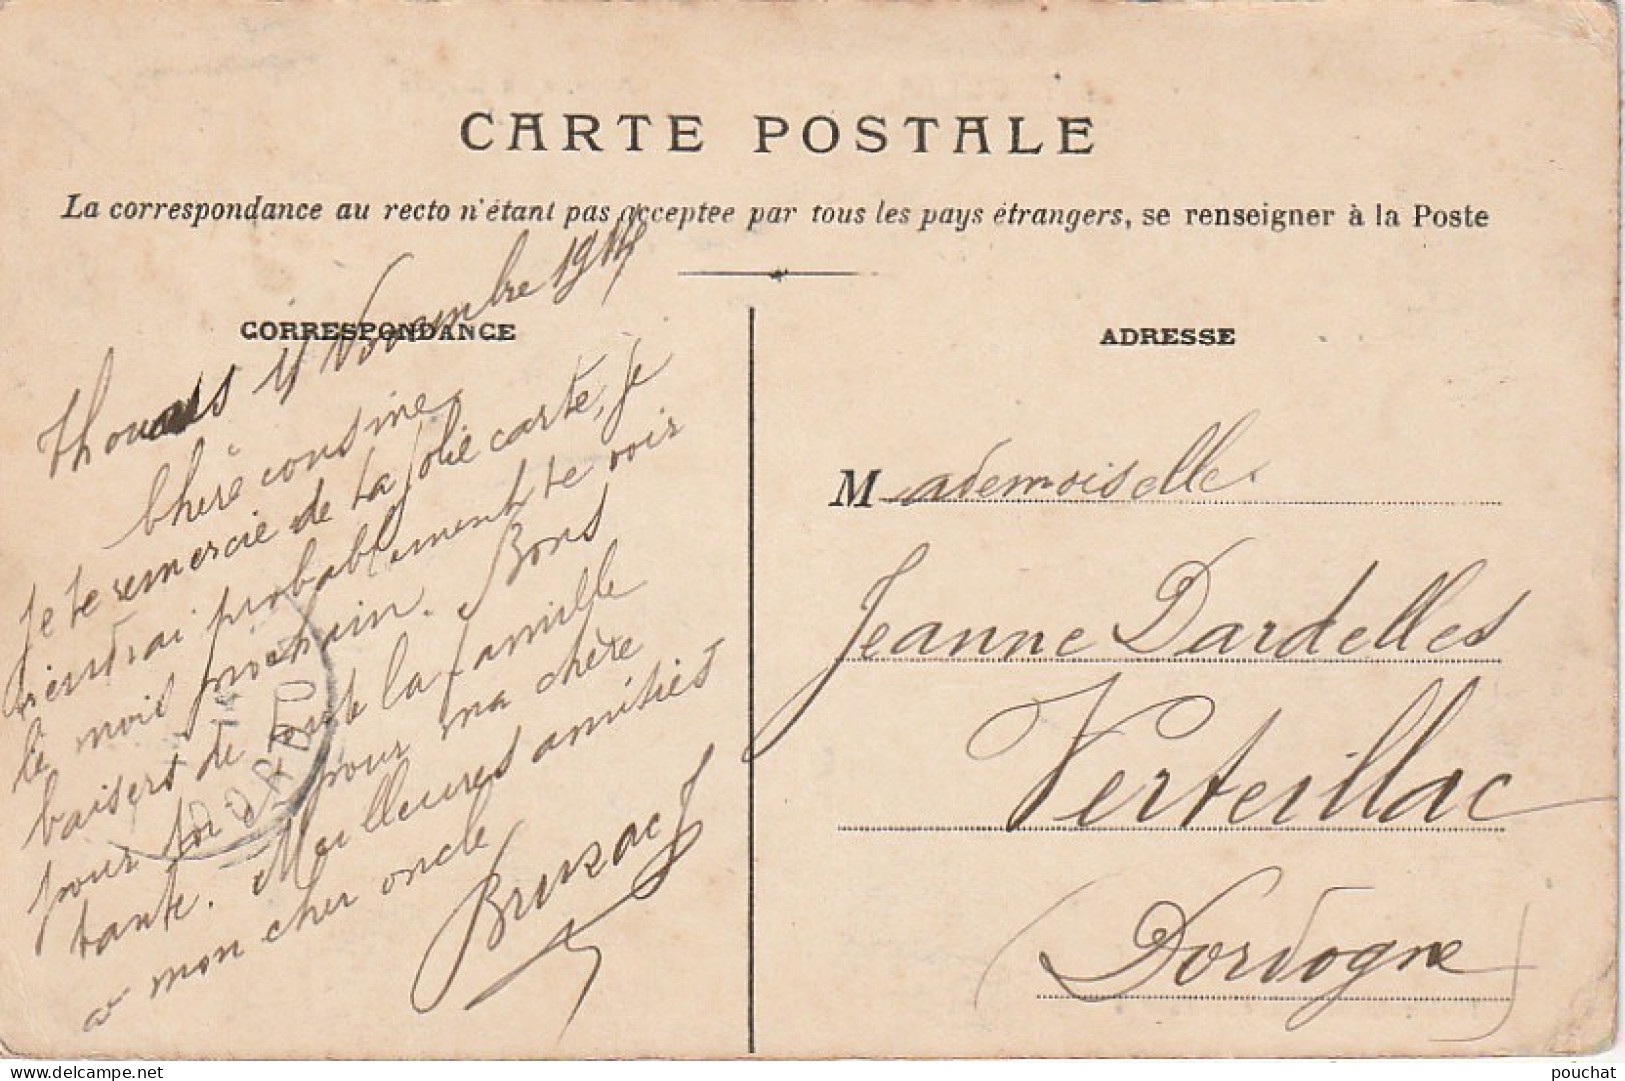 CARTE POSTALE
La correspondance au recto n'étant pas acceptee par tous les pays étrangers, se renseigner à la Poste
CORRESPONDANCE
Thouars 11 Novembre 1914
Chère cousine
Je te remercie de ta jolie carte, je
viendrai probablement te voir
le mois prochain. Bons
baisers de toute la famille
pour toi & pour ma chère
tante. Meilleures amitiés
a mon cher oncle
Bruzac J
DORDO
ADRESSE
Mademoiselle
Jeanne Dardelles
Verteillac
(Dordogne)
Delcampe.net
pouchat